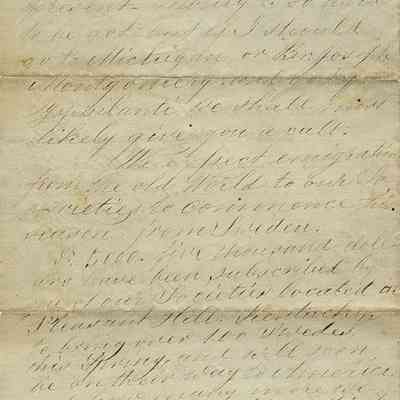 to be got and if I should
go to Michigan, or
Montgomery and
Ypsilanti we shall most
likely give you a call.
We expect emigration
from the old World to our So
cieties to commence this
season from Sweden.
$5,000. five thousand doll
ars have been subscribed by
one of our Societies located at
Pleasant Hill, Kentucky,
to bring over 100 Swedes
this Spring, and will soon
be on their way to America
many more